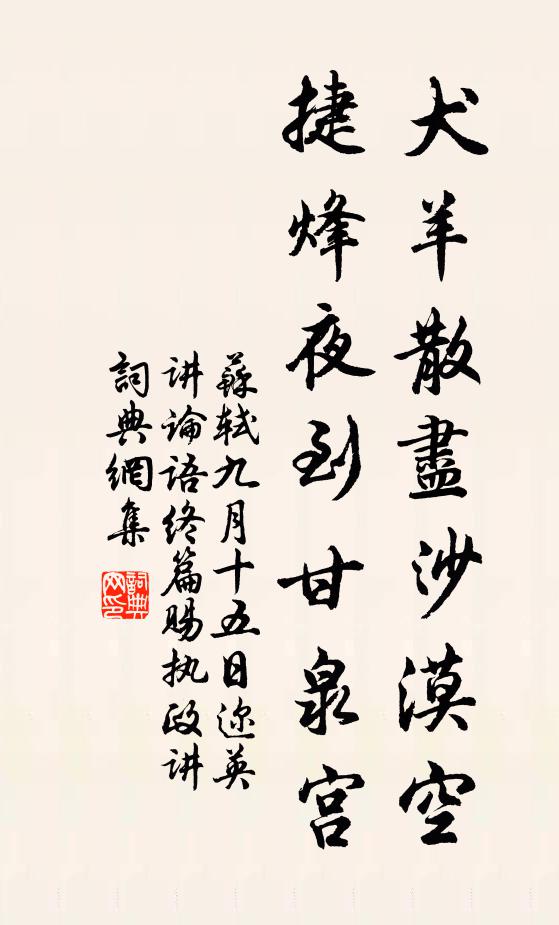 犬羊散盡沙漠空
捷烽夜到甘泉宫
蘇轼九月十五日迩英
讲論语终篇赐执政讲
詞典網集
詞典网印